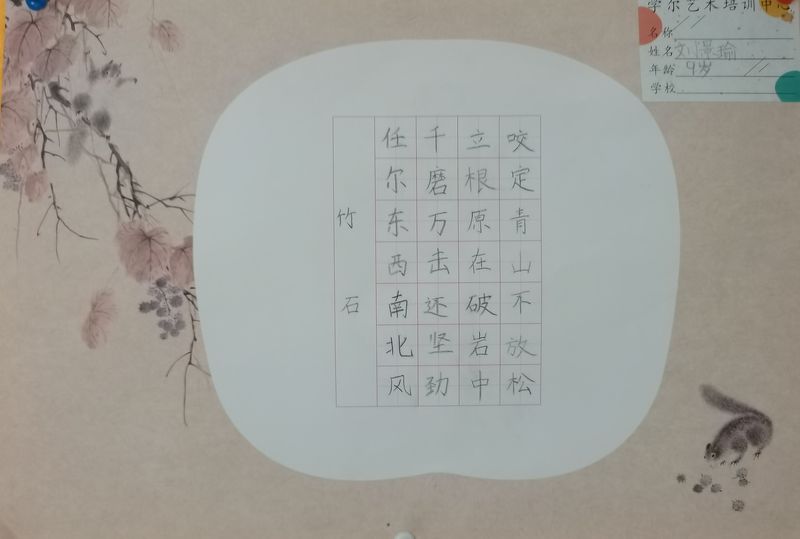 咬定青山不放松
立根原在破岩中
千磨万击还坚劲
任尔东西南北风
竹石
学尔艺术培训中心
名称
姓名 刘
年龄 9岁
学校